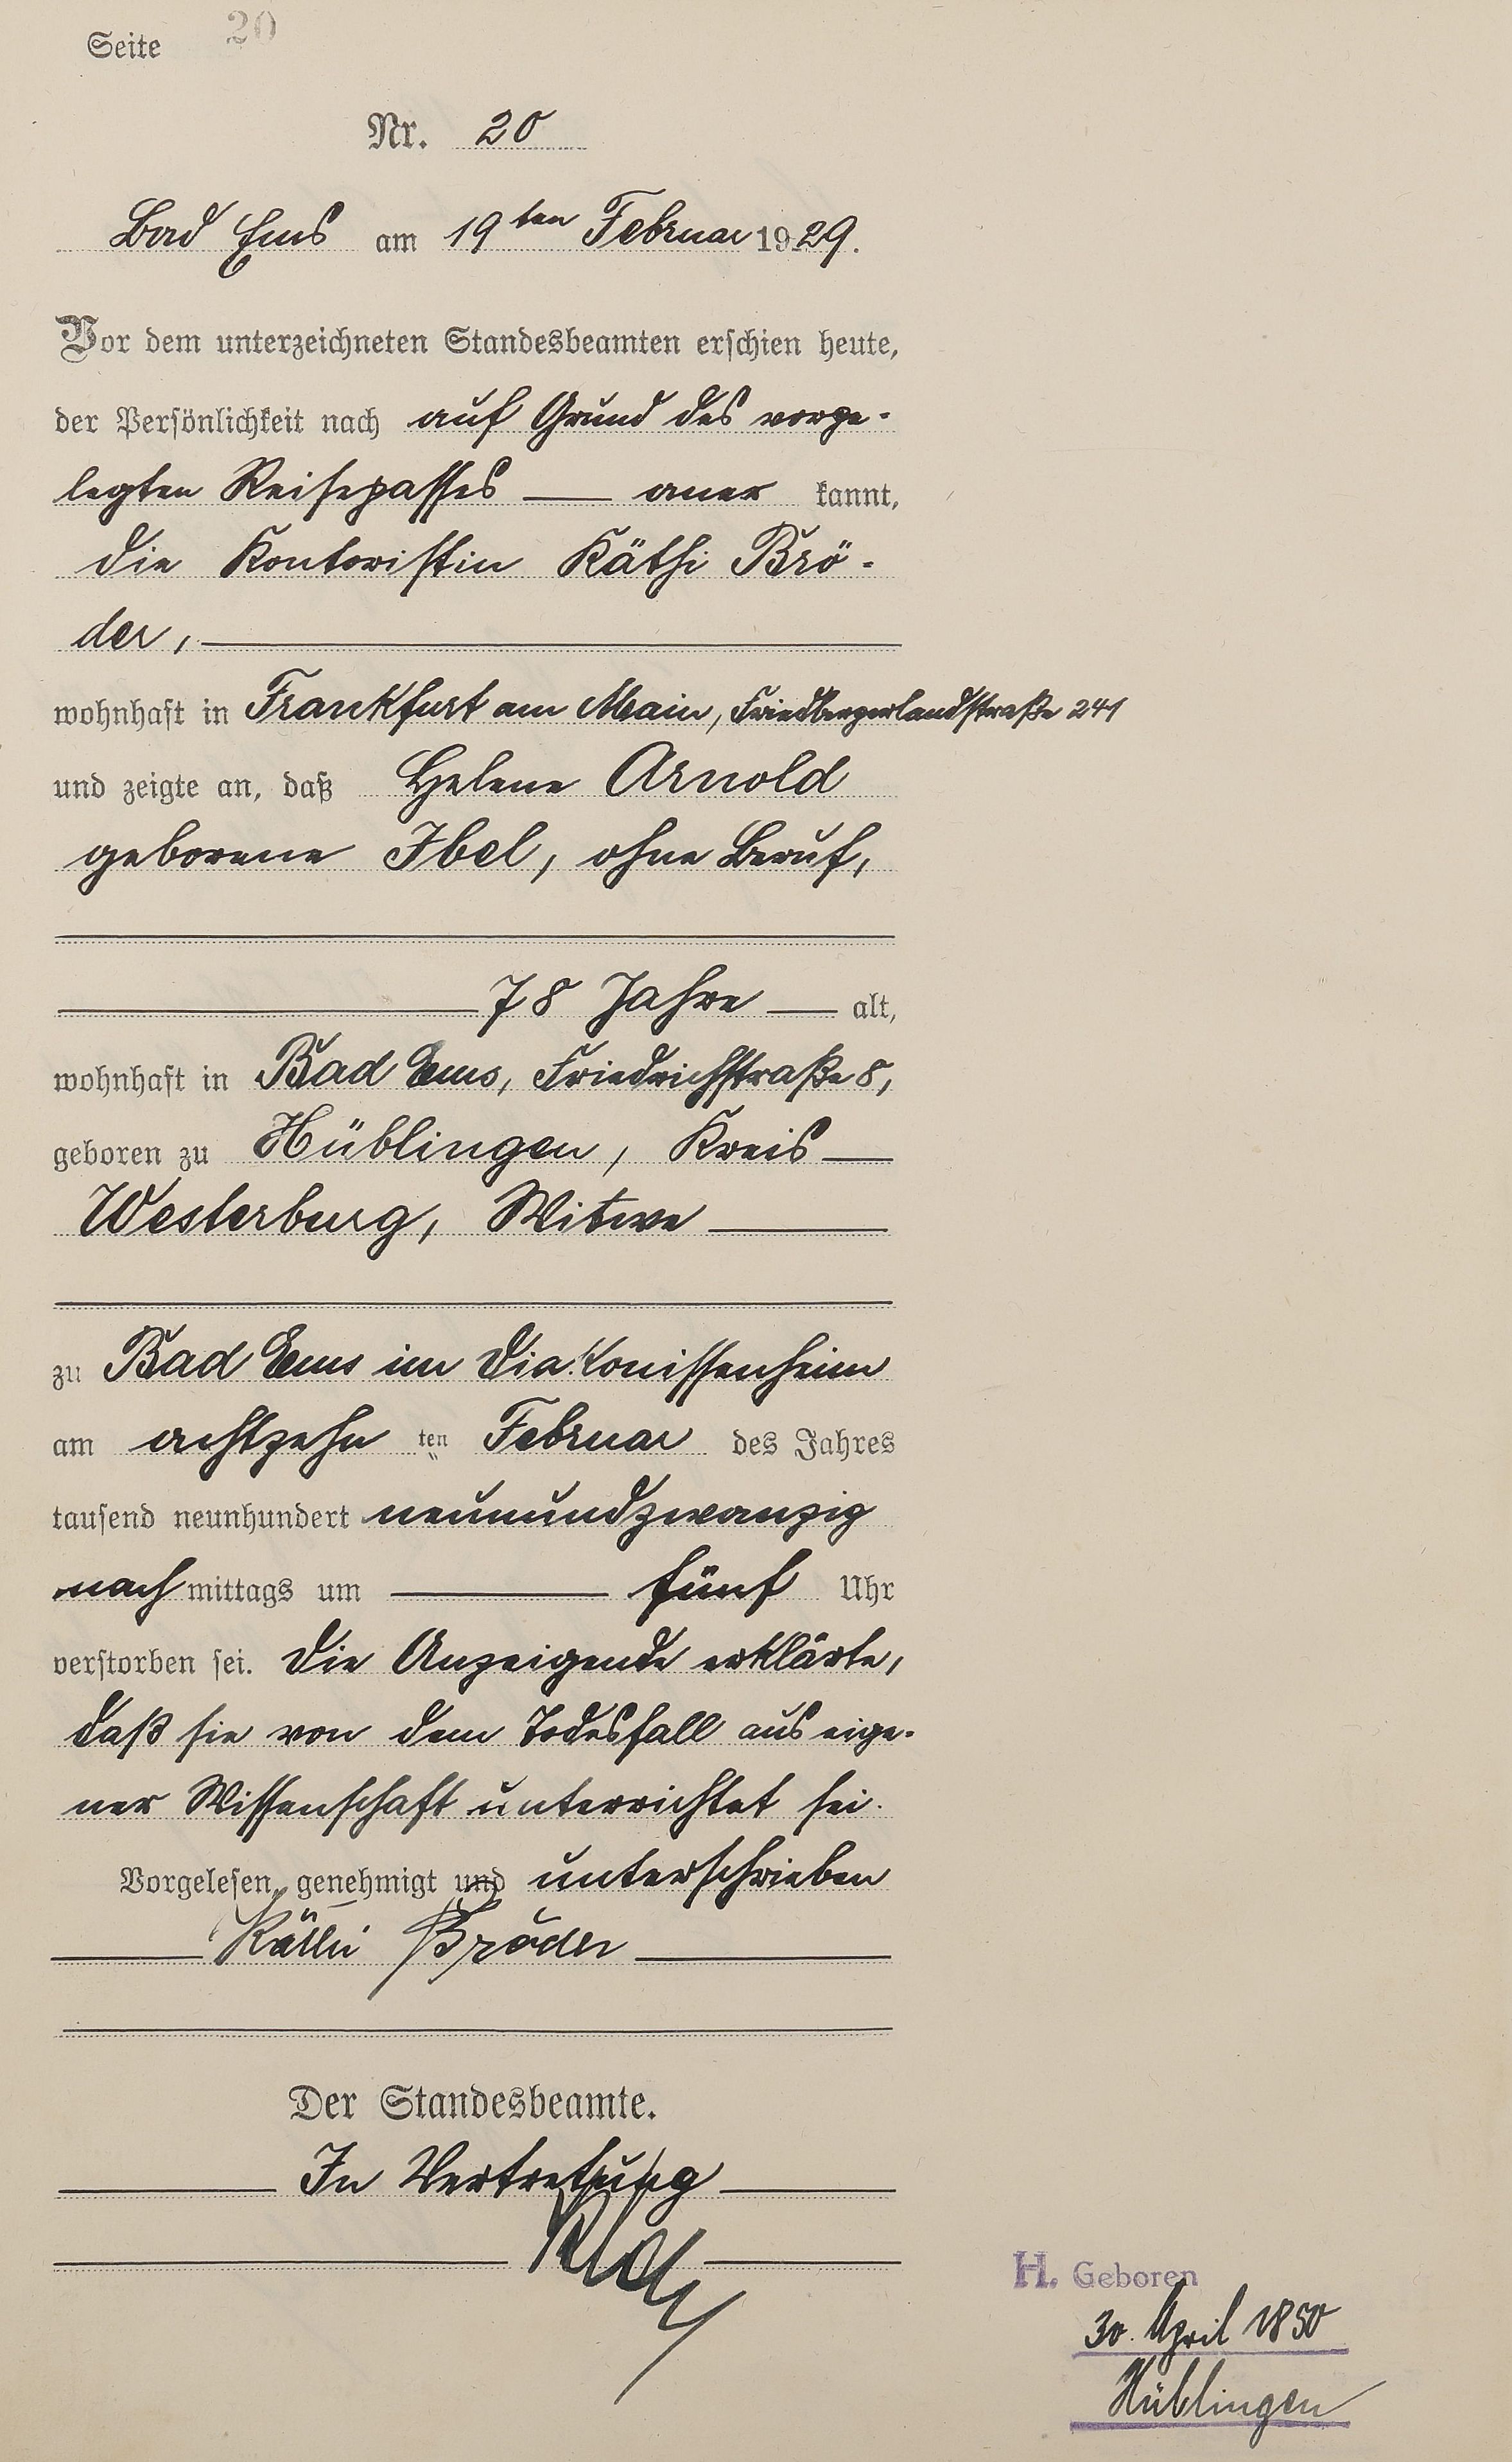 Seite 20
Nr. 20
Bad Ems am 19ten Februar 1929.
Vor dem unterzeichneten Standesbeamten erschien heute,
der Persönlichkeit nach auf Grund des vorge-
legten Reisepasses — aner kannt,
die Kontoristin Käthi Brö-
der,
wohnhaft in Frankfurt am Main, Friedbergerlandstraße 241
und zeigte an, daß Helene Arnold
geborene Ibel, ohne Beruf,
78 Jahre — alt,
wohnhaft in Bad Ems, Friedrichstraße 8,
geboren zu Hüblingen, Kreis
Westerburg, Witwe
zu Bad Ems im Diakonissenheim
am achtzehn ten Februar des Jahres
tausend neunhundert neunundzwanzig
nach mittags um — fünf Uhr
verstorben sei. Die Anzeigende erklärte,
daß sie von dem Todesfall aus eige-
ner Wissenschaft unterrichtet sei.
Vorgelesen, genehmigt und unterschrieben
Käthi Bröder
Der Standesbeamte.
In Vertretung
H. Geboren
30. April 1850
Hüblingen